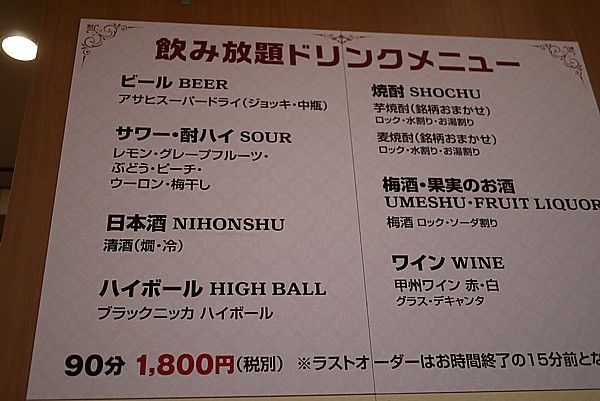 飲み放題ドリンクメニュー
ビール BEER
アサヒスーパードライ(ジョッキ・中瓶)
サワー・酎ハイ SOUR
レモン・グレープフルーツ・
ぶどう・ピーチ・
ウーロン・梅干し
日本酒 NIHONSHU
清酒(燗・冷)
ハイボール HIGH BALL
ブラックニッカ ハイボール
焼酎 SHOCHU
芋焼酎(銘柄おまかせ)
ロック・水割り・お湯割り
麦焼酎(銘柄おまかせ)
ロック・水割り・お湯割り
梅酒・果実のお酒
UMESHU・FRUIT LIQUOR
梅酒 ロック・ソーダ割り
ワイン WINE
甲州ワイン 赤・白
グラス・デキャンタ
90分 1,800円(税別) ※ラストオーダーはお時間終了の15分前とな